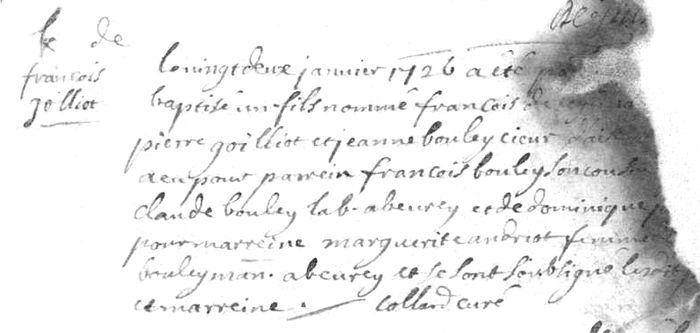 b de
françois
Joilliot
le vingtdeux janvier 1726 a été
baptisé un fils nommé françois de
pierre Joilliot et jeanne bouley
a eu pour parrein françois bouley son cousin
claude bouley lab. a beurey et de dominique
pour marreine marguerite andriot femme
bouley man. a beurey et se sont soubsigné
et marreine. collard curé